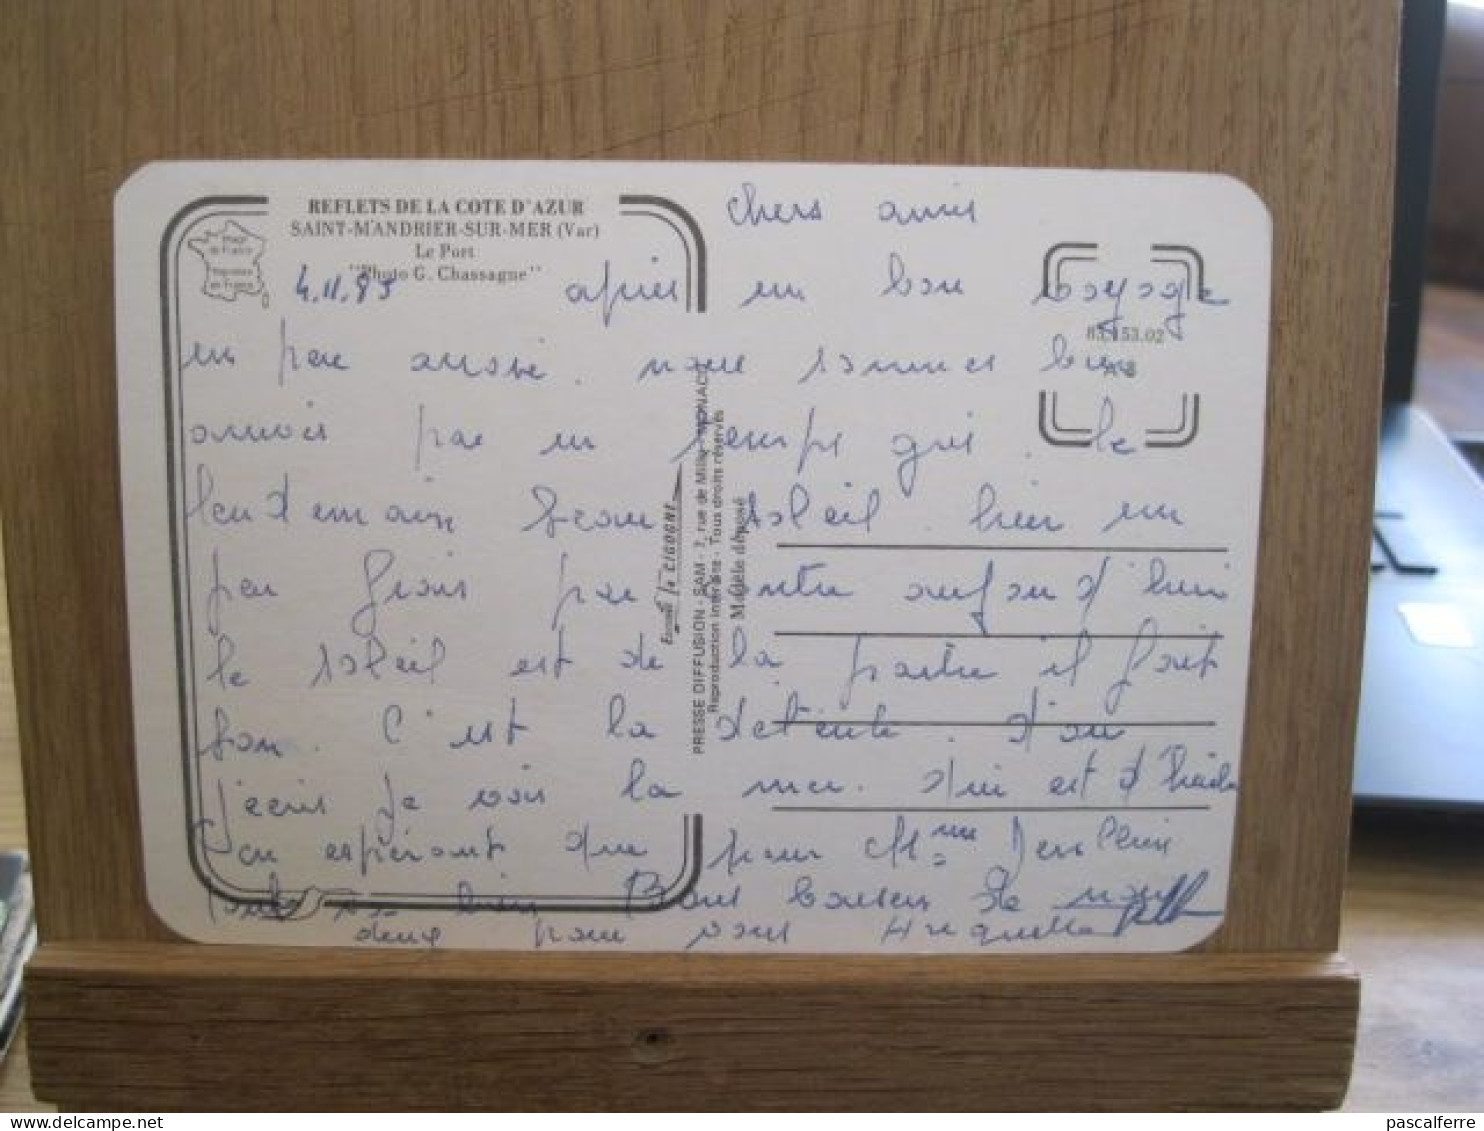 REFLETS DE LA COTE D'AZUR
SAINT-MANDRIER-SUR-MER (Var)
Le Port
"Photo G. Chassagne"
Image
de France
Imprimées
en France
4.11.89
chers amis
après un bon voyage
83.153.02
un peu arrosé. nous sommes bien
arrivés par un temps gris. le
lendemain beau soleil. hier un
peu frais par contre aujourd'hui
le soleil est de la partie il fait
bon. C'est la détente. d'ou
j'ecris je vois la mer. qui est d'huile
En espérant que pour Mme
tout va bien Bons baisers de nous
deux pour vous
PRESSE DIFFUSION - SAM - 7, rue de Millo - MONACO
Reproduction interdite - Tous droits réservés
Modèle déposé
la CIGOGNE
pascalferre